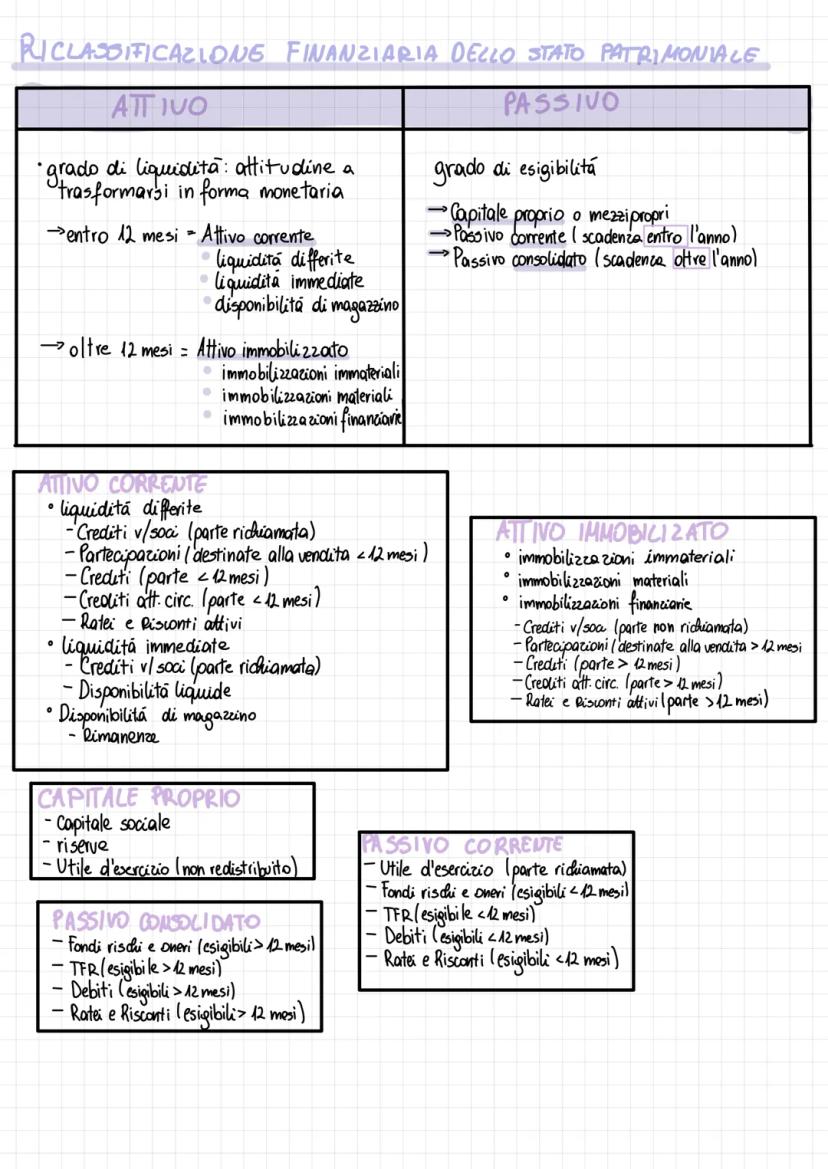 RICLASSIFICAZIONE FINANZIARIA DELLO STATO PATRIMONIALE
ATTIVO
• grado di liquidità: attitudine a
trasformarsi in forma monetaria
→ entro 12 mesi = Attivo corrente
• liquidità differite
• liquidità immediate
• disponibilità di magazzino
→ oltre 12 mesi = Attivo immobilizzato
• immobilizzazioni immateriali
• immobilizzazioni materiali
• immobilizzazioni finanziarie
PASSIVO
grado di esigibilità
→ Capitale proprio o mezzi propri
→ Passivo corrente (scadenza entro l'anno)
→ Passivo consolidato (scadenza oltre l'anno)
ATTIVO CORRENTE
• liquidità differite
- Crediti v/soci (parte richiamata)
- Partecipazioni (destinate alla vendita < 12 mesi)
- Crediti (parte < 12 mesi)
- Crediti att. circ. (parte < 12 mesi)
- Ratei e Risconti attivi
• liquidità immediate
- Crediti v/soci (parte richiamata)
- Disponibilità liquide
• Disponibilità di magazzino
- Rimanenze
ATTIVO IMMOBILIZATO
• immobilizzazioni immateriali
• immobilizzazioni materiali
• immobilizzazioni finanziarie
- Crediti v/soci (parte non richiamata)
- Partecipazioni (destinate alla vendita > 12 mesi
- Crediti (parte > 12 mesi)
- Crediti att. circ. (parte > 12 mesi)
- Ratei e Risconti attivi (parte > 12 mesi)
CAPITALE PROPRIO
- Capitale sociale
- riserve
- Utile d'esercizio (non redistribuito)
PASSIVO CORRENTE
- Utile d'esercizio (parte richiamata)
- Fondi rischi e oneri (esigibili < 12 mesi)
- TFR (esigibile < 12 mesi)
- Debiti (esigibili < 12 mesi)
- Ratei e Risconti (esigibili < 12 mesi)
PASSIVO CONSOLIDATO
- Fondi rischi e oneri (esigibili > 12 mesi)
- TFR (esigibile > 12 mesi)
- Debiti (esigibili > 12 mesi)
- Ratei e Risconti (esigibili > 12 mesi)